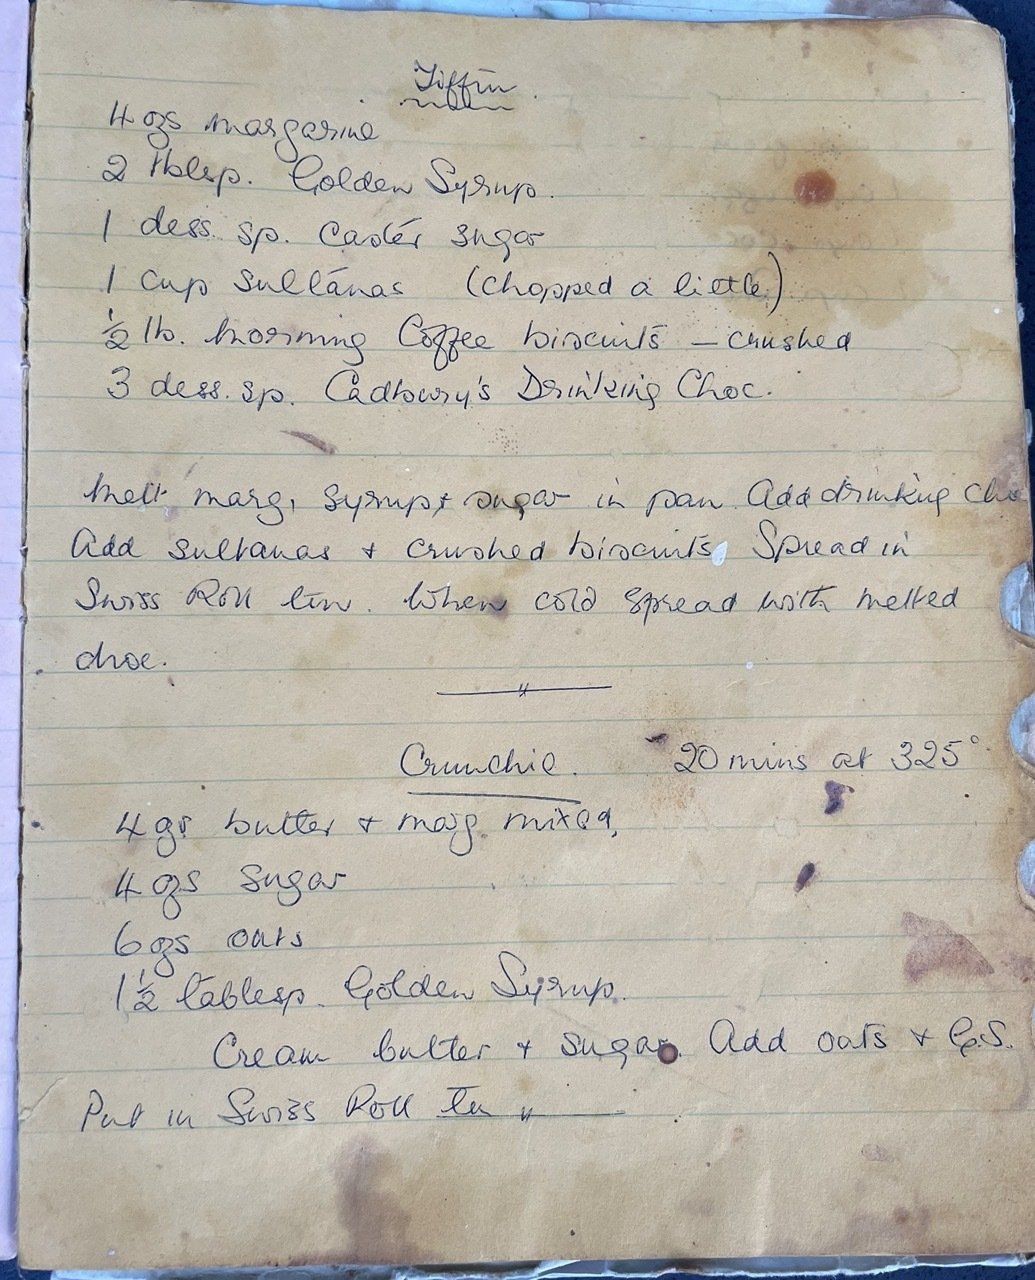 Tiffin.
4 ozs margarine
2 tblsp. Golden Syrup.
1 dess. sp. Caster sugar
1 cup Sultanas (chopped a little)
½ lb. Morning Coffee biscuits – crushed
3 dess. sp. Cadbury's Drinking Choc.
Melt marg, syrup, + sugar in pan. Add drinking cho
Add sultanas + crushed biscuits. Spread in
Swiss Roll tin. When cold spread with melted
choc.
Crunchie. 20 mins at 325°
4 butter + marg mixed,
4 ozs sugar
6 ozs oats
1½ tablesp. Golden Syrup.
Cream butter + sugar. Add oats + G.S.
Put in Swiss Roll tin